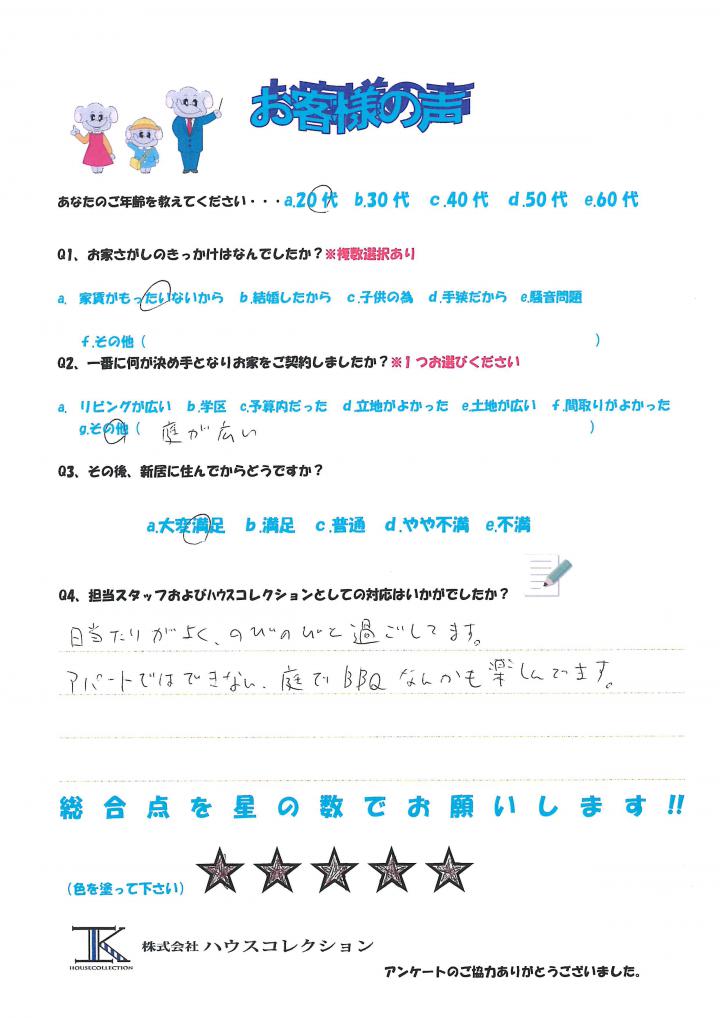 お客様の声
あなたのご年齢を教えてください・・・a.20代 b.30代 c.40代 d.50代 e.60代
Q1、お家さがしのきっかけはなんでしたか？※複数選択あり
a. 家賃がもったいないから b.結婚したから c.子供の為 d.手狭だから e.騒音問題
f.その他（ ）
Q2、一番に何が決め手となりお家をご契約しましたか？※1つお選びください
a. リビングが広い b.学区 c.予算内だった d.立地がよかった e.土地が広い f.間取りがよかった
g.その他（ 庭が広い ）
Q3、その後、新居に住んでからどうですか？
a.大変満足 b.満足 c.普通 d.やや不満 e.不満
Q4、担当スタッフおよびハウスコレクションとしての対応はいかがでしたか？
日当たりがよく、のびのびと過ごしてます。
アパートではできない、庭でBBQなんかも楽しんでます。
総合点を星の数でお願いします!!
（色を塗って下さい）
HOUSECOLLECTION 株式会社 ハウスコレクション
アンケートのご協力ありがとうございました。